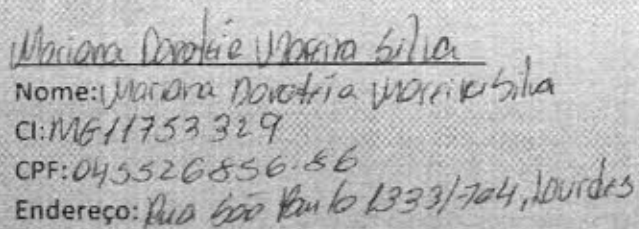 Mariana Dorotéia Moreira Silva
Nome: Mariana Dorotéia Moreira Silva
CI: MG11753329
CPF: 045526856-86
Endereço: Rua São Paulo 1333/704, Lourdes